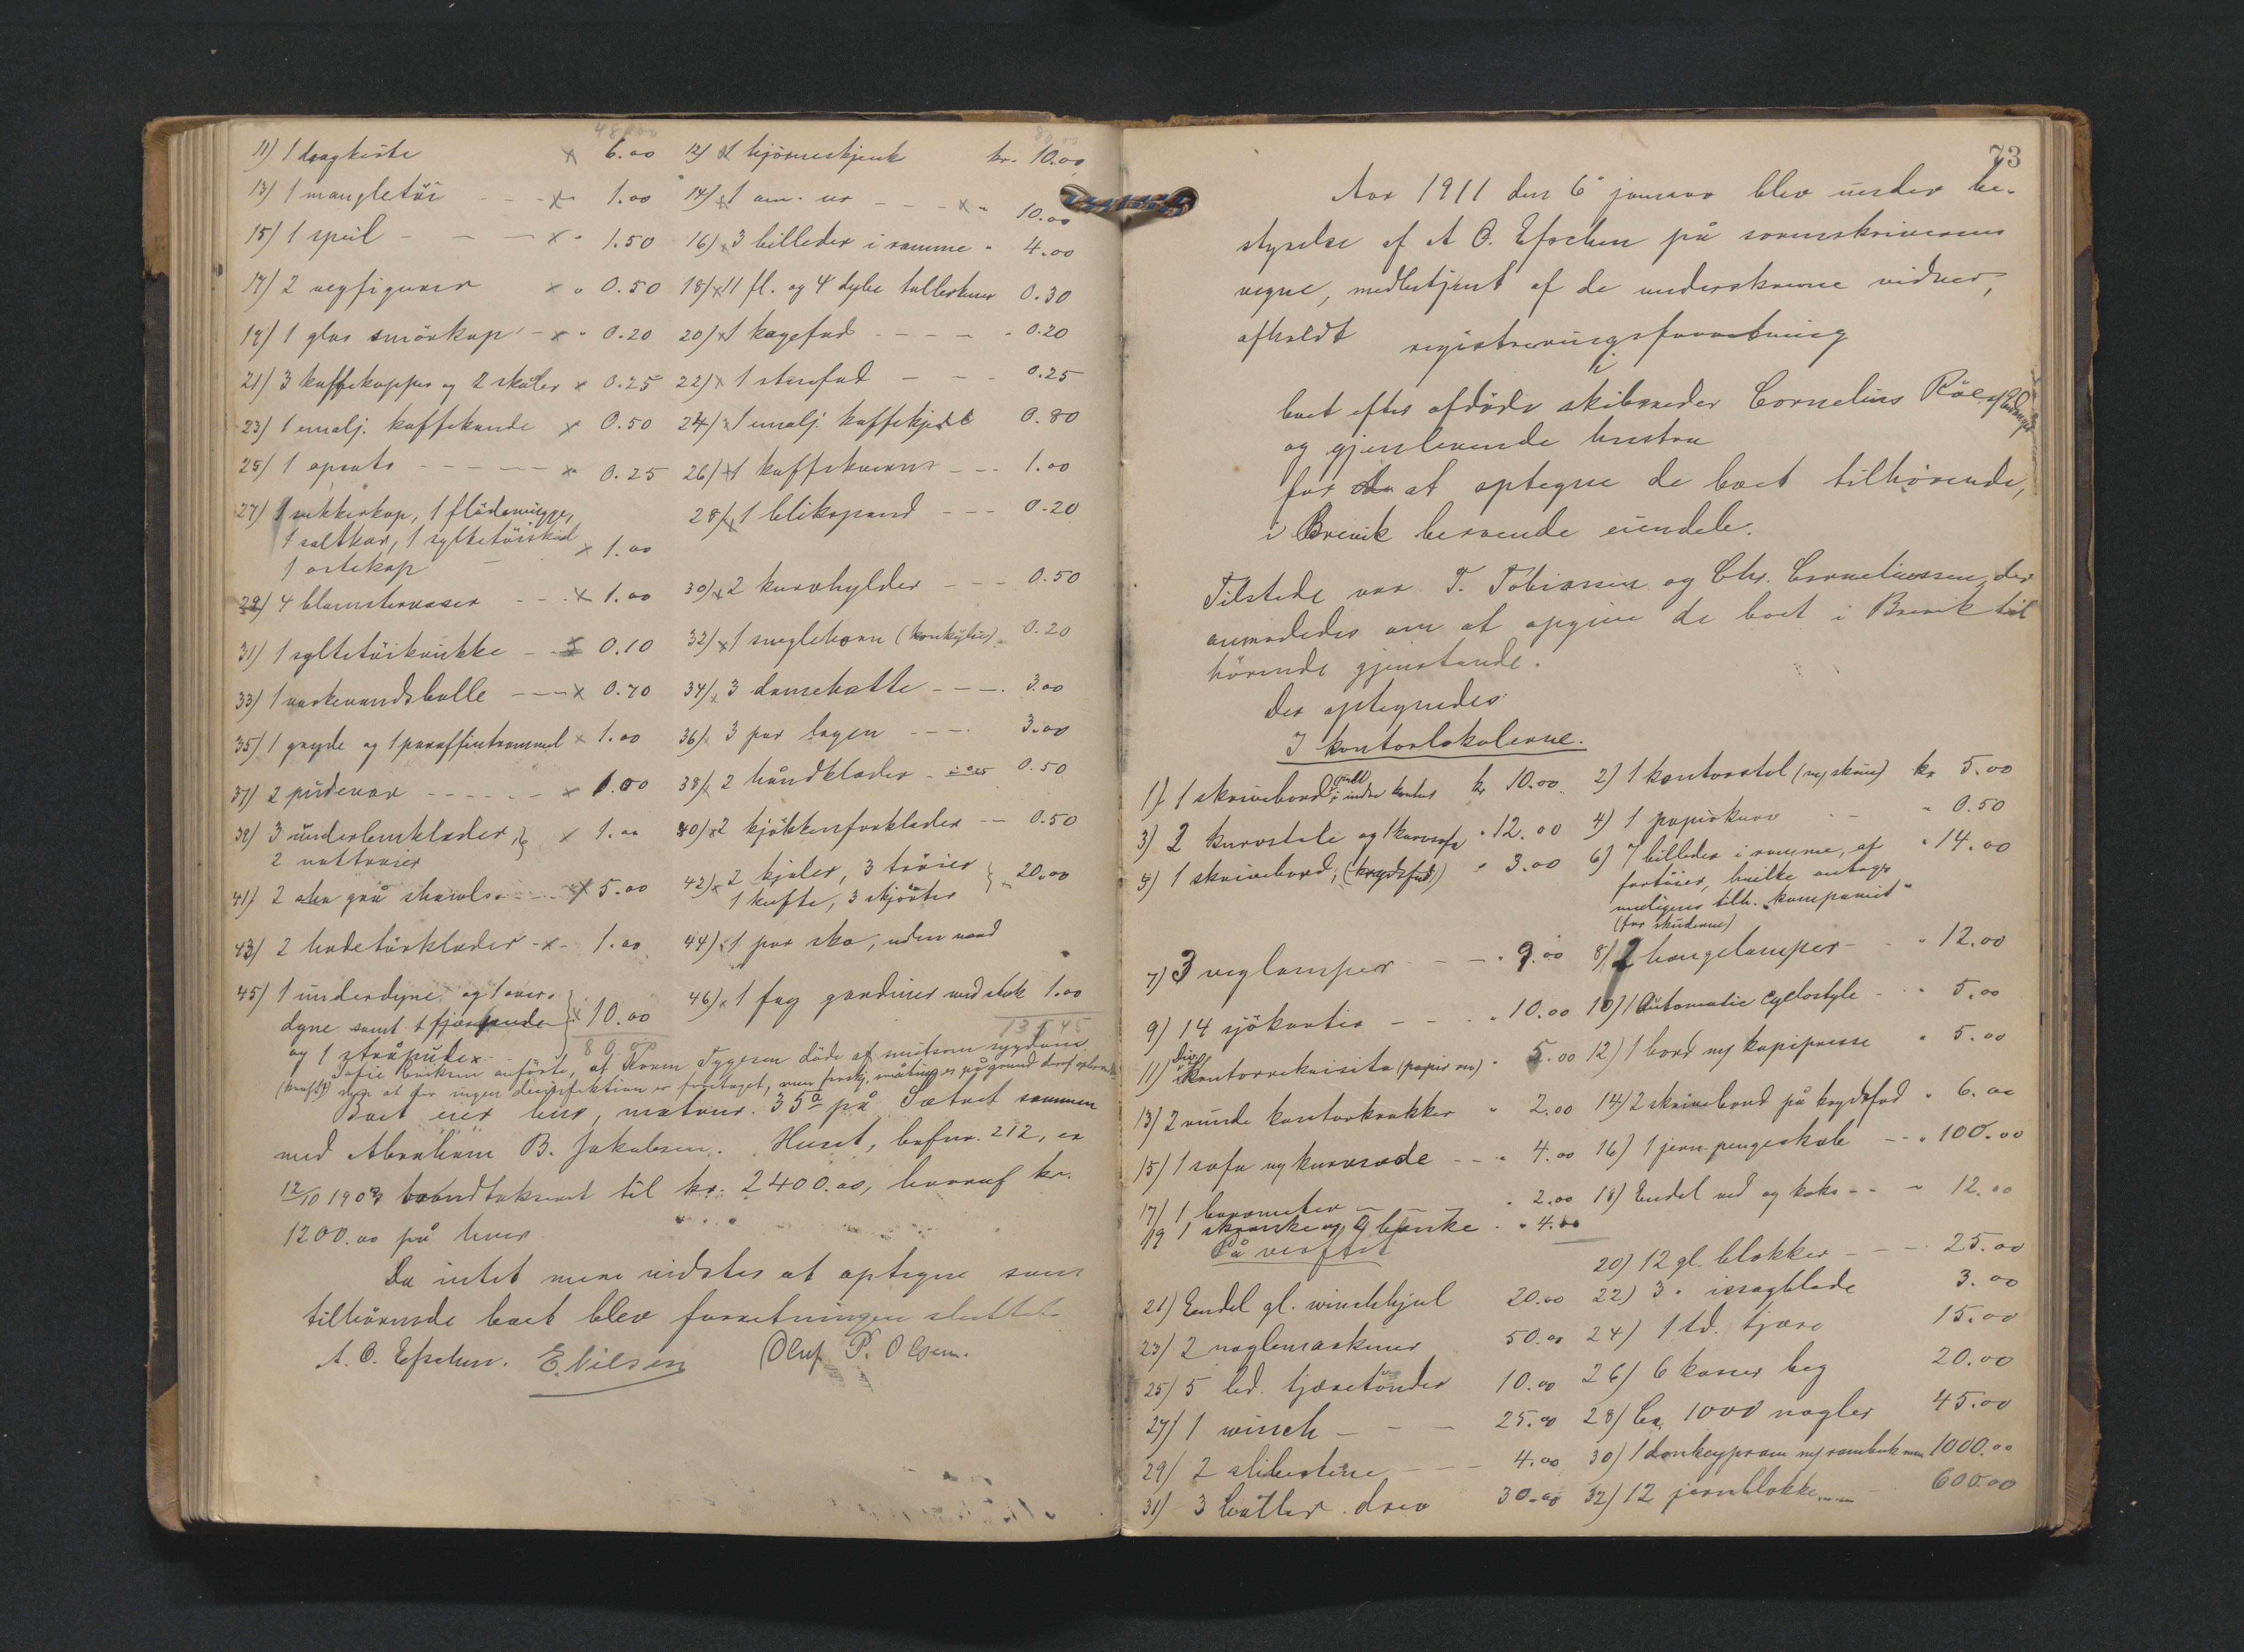 48.00 80.00
11) 1 dragkiste x 6.00 12) x 1 hjörneskjenk kr. 10.00
13) 1 mangletöi - - - x - 1.00 14) x 1 am. ur - - - x " 10.00
15) 1 speil - - - x " 1.50 16) x 3 billeder i ramme " 4.00
17) 2 vegfigurer x " 0.50 18) x 11 fl. og 4 dybe tallerkner 0.30
19) 1 glas smörkop - x " 0.20 20) x 1 kagefad - - - - " 0.20
21) 3 kaffekopper og 2 skåler x 0.25 22) x 1 stegefad - - - 0.25
23) 1 emalj. kaffekande x 0.50 24) x 1 emalj. kaffekjedel 0.80
25) 1 opsats - - - - - x 0.25 26) x 1 kaffekværn - - - 1.00
27) 1 sukkerkop, 1 flödemugge, 28) x 1 blikspand - - - 0.20
1 saltkar, 1 syltetöiskål x 1.00
1 ostekop -
29) 4 blomstervaser - - - x 1.00 30) x 2 kurvhylder - - - 0.50
31) 1 syltetöikrukke - - x 0.10 32) x 1 sneglehorn (konkylie) " 0.20
33) 1 vaskevandsbolle - - - x 0.70 34) x 3 damehatte - - - . 3.00
35) 1 gryde og 1 paraffintrommel x 1.00 36) x 3 par lagen - - - . 3.00
37) 2 pudevar - - - - - x 1.00 38) x 2 håndklæder - à 0.25 0.50
39) 3 underbenklæder, } x 1.00 40) x 2 kjökkenforklæder - - 0.50
2 nattroier
41) 2 grå shawlser - - - x 5.00 42) x 2 kjoler, 3 tröier } 20.00
1 kufte, 3 skjörter
43) 2 hodetörklæder - x - 1.00 44) x 1 par sko, uden værd
45) 1 underdyne og 1 over- } x 10.00 46) x 1 fag gardiner med stok 1.00
dyne samt 1 131.45
og 1 stråpude x - 80.00
Sofie Eriksen anförte, at Karen Tygesen döde af smitsom sygdom
(kræft) men at der ingen desinfektion er foretaget,
Boet eier hus, matrnr. 35 a på Sætret sammen
med Abraham B. Jakobsen. Huset, bofnr. 212, er
12/10 1907 brandtakseret til kr. 2400.00, hvoraf kr.
1200.00 på hver.
Da intet mere vidstes at optegne som
tilhörende boet blev forretningen sluttet.
A. O. Efschen. E. Nilsen Oluf P. Olsen.
73
Aar 1911 den 6' januar blev under be-
styrelse af A O. Efschen på sorenskriverens
vegne, medbetjent af de underskrevne vidner,
afholdt registreringsforretning
i
boet efter afdöde skibsreder Cornelius
og gjenlevende hustru
for at optegne de boet tilhörende,
i Brevik beroende eiendele.
Tilstede var T. Tobiassen og Chr. Corneliussen, der
anmodedes om at opgive de boet i Brevik til
hörende gjenstande.
Der optegnedes:
I kontorlokalerne.
1) 1 skrivebord i indre kontor kr 10.00 2) 1 kontorstol (m/ skrue) kr 5.00
3) 2 kurvstole og 1 kurvsofa " 12.00 4) 1 papirkurv - - " 0.50
5) 1 skrivebord, (krydsfod) " 3.00 6) 7 billeder i ramme, af " 14.00
fartöier, hvilke antage-
muligens tilh. "kompaniet"
(for skuderne)
7) 3 veglamper - - - " 9.00 8) 2 hængelamper - - " 12.00
9) 14 sjökarter - - - " 10.00 10) 1 Automatic Cyclostyle - " 5.00
11) Div. kontorrekvisita (papir mv) " 5.00 12) 1 bord m/ kopipresse " 5.00
13) 2 runde kontorkrakker " 2.00 14) 2 skrivebord på krydsfod " 6.00
15) 1 sofa m/ kurvsæde - - " 4.00 16) 1 jern pengeskab - - " 100.00
17) 1 barometer - - - " 2.00 18) Endel ved og koks - - " 12.00
19 1 skranke og 2 bænke " 4.00
På verftet
20) 12 gl. blokker - - - 25.00
21) Endel gl. winchhjul 20.00 22) 3 " issagblade 3.00
23) 2 naglemaskiner 50.00 24) 1 td. tjære 15.00
25) 5 led. tjæretönder 10.00 26) 6 kasser beg 20.00
27) 1 winch - - - 25.00 28) Ca. 1000 nagler 45.00
29) 2 slibestene - - - 4.00 30) 1 donkeypram m/ rambuk mm 1000.00
31) 3 båtter. drev 30.00 32) 12 jernblokke - 600.00